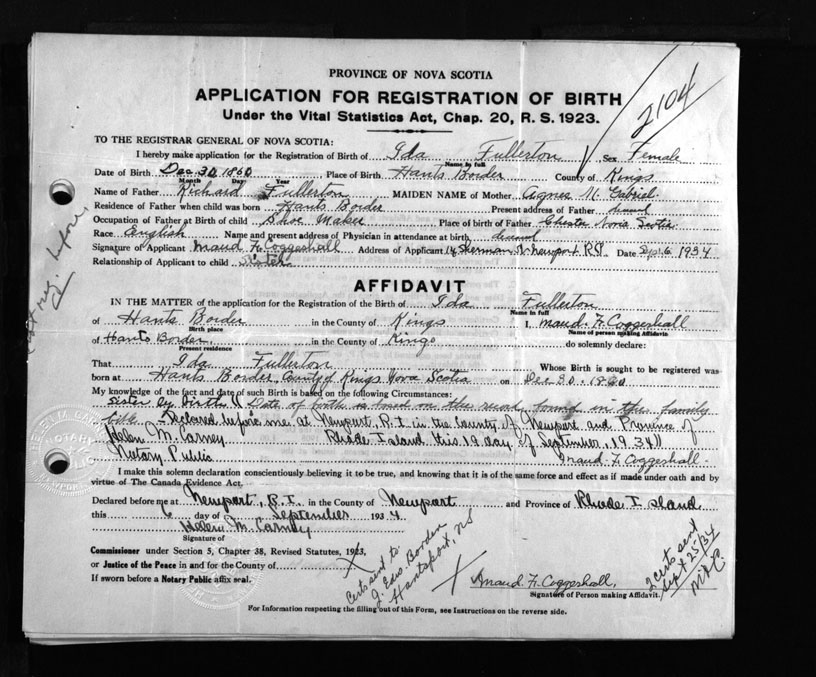 PROVINCE OF NOVA SCOTIA
APPLICATION FOR REGISTRATION OF BIRTH
Under the Vital Statistics Act, Chap. 20, R. S. 1923.
2104
TO THE REGISTRAR GENERAL OF NOVA SCOTIA:
I hereby make application for the Registration of Birth of Ida Fullerton Sex Female
Name in full
Date of Birth Dec 30 1860 Place of Birth Hants Border County of Kings
Month Day Year
Name of Father Richard Fullerton MAIDEN NAME of Mother Agnes M. Gabriel
Residence of Father when child was born Hants Border Present address of Father
Occupation of Father at Birth of child Shoe Maker Place of birth of Father Chester Nova Scotia
Race English Name and present address of Physician in attendance at birth
Signature of Applicant Maud F. Coggeshall Address of Applicant 14 Sherman St Newport R.I. Date Sept. 6 1934
Relationship of Applicant to child Sister
AFFIDAVIT
IN THE MATTER of the application for the Registration of the Birth of Ida Fullerton
Name in full
of Hants Border in the County of Kings I, Maud. F. Coggeshall
Birth place Name of person making Affidavit
of Hants Border, in the County of Kings do solemnly declare:
Present residence
That Ida Fullerton Whose Birth is sought to be registered was
born at Hants Border, County of Kings Nova Scotia on Dec 30. 1860
My knowledge of the fact and date of such Birth is based on the following Circumstances:
Sister by birth & Date of birth is on the record found in the family
bible. Declared before me, at Newport, R. I. in the County of Newport and Province of
Helen M. Carney Rhode Island this 19 day of September, 1934
Notary Public Maud F. Coggeshall
I make this solemn declaration conscientiously believing it to be true, and knowing that it is of the same force and effect as if made under oath and by
virtue of The Canada Evidence Act.
Declared before me at Newport, R. I. in the County of Newport and Province of Rhode Island
this 6 day of September 1934
Helen M. Carney
Signature of
Commissioner under Section 5, Chapter 38, Revised Statutes, 1923,
or Justice of the Peace in and for the County of
If sworn before a Notary Public affix seal.
X
Certs sent to
J. Edw. Borden
Hantsport, NS
X Maud. F. Coggeshall.
Signature of Person making Affidavit.
2 certs sent
Sept 25/34
For Information respecting the filling out of this Form, see Instructions on the reverse side.
not reg. before